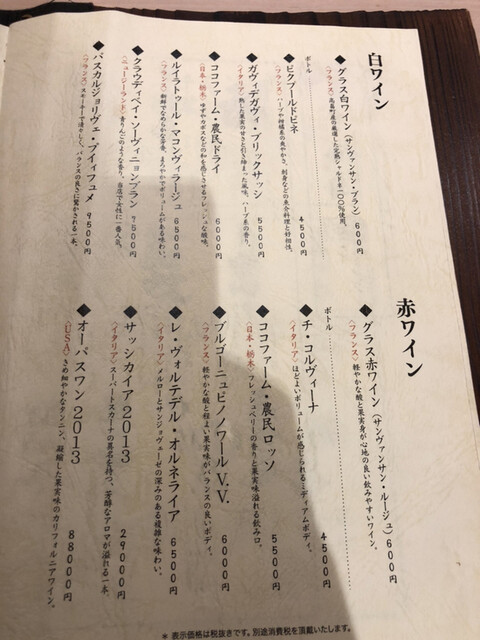 白ワイン
◆グラス白ワイン（サンヴァンサン・ブラン） 600円
〈フランス〉高畠町産の厳選した完熟シャルドネ100%使用。
ボトル
◆ピクプールドピネ 4500円
〈フランス〉ハーブや柑橘系の爽やかさ。刺身などの魚介料理と好相性。
◆ガヴィデガヴィ・ブリックサッシ 5500円
〈イタリア〉熟した果実の甘さと引き締まった風味。ハーブ系の香り。
◆ココファーム・農民ドライ 6000円
〈日本・栃木〉ゆずやカボスなどの和を感じさせるフレッシュな酸味。
◆ルイラトゥール・マコンヴィラージュ 6500円
〈フランス〉新鮮でなめらかな芳香。まろやかでボリュームがある味わい。
◆クラウディベイ・ソーヴィニョンブラン 7500円
〈ニュージーランド〉青りんごのような香り。当店で女性に一番人気。
◆パスカルジョリヴェ・プイィフュメ 9500円
〈フランス〉スモーキーで清々しく、バランスの良さに驚かされる一本。
赤ワイン
◆グラス赤ワイン（サンヴァンサン・ルージュ） 600円
〈フランス〉軽やかな酸と果実身が心地の良い飲みやすいワイン。
ボトル
◆チ・コルヴィーナ 4500円
〈イタリア〉ほどよいボリュームが感じられるミディアムボディ。
◆ココファーム・農民ロッソ 5500円
〈日本・栃木〉フレッシュベリーの香りと果実味溢れる飲み口。
◆ブルゴーニュピノノワールV.V. 6000円
〈フランス〉軽やかな酸と程よい果実味がバランスの良いボディ。
◆レ・ヴォルテデル・オルネライア 6500円
〈イタリア〉メルローとサンジョヴェーゼの深みのある複雑な味わい。
◆サッシカイア2013 29000円
〈イタリア〉スーパートスカーナの異名を持つ、芳醇なアロマが溢れる一本。
◆オーパスワン2013 88000円
〈USA〉きめ細やかなタンニン、凝縮した果実味のカリフォルニアワイン。
＊表示価格は税抜きです。別途消費税を頂戴いたします。